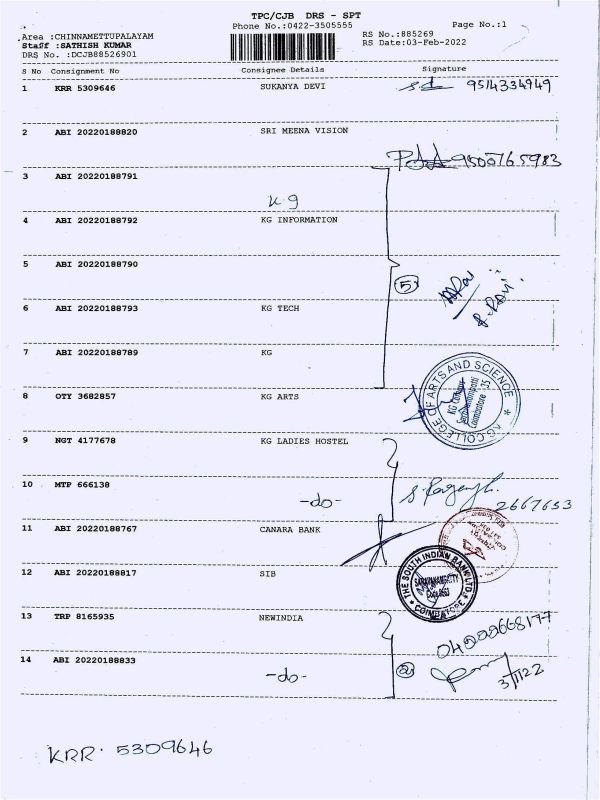 TPC/CJB DRS - SPT
Phone No.:0422-3505555 Page No.:1
Area :CHINNAMETTUPALAYAM RS No.:885269
Staff :SATHISH KUMAR RS Date:03-Feb-2022
DRS No. :DCJB88526901
S No Consignment No Consignee Details Signature
1 KRR 5309646 SUKANYA DEVI 9514334949
2 ABI 20220188820 SRI MEENA VISION
9500765983
3 ABI 20220188791
KG
4 ABI 20220188792 KG INFORMATION
5 ABI 20220188790
5
6 ABI 20220188793 KG TECH
7 ABI 20220188789 KG
8 OTY 3682857 KG ARTS
KG COLLEGE OF ARTS AND SCIENCE
Coimatore - 35
9 NGT 4177678 KG LADIES HOSTEL
10 MTP 666138
-do- 2667653
11 ABI 20220188767 CANARA BANK
12 ABI 20220188817 SIB
THE SOUTH INDIAN BANK LTD.
COIMBATORE
13 TRP 8165935 NEWINDIA
14 ABI 20220188833
-do- 2
KRR. 5309646